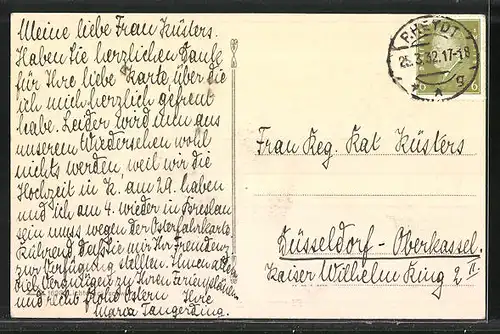 Meine liebe Frau Küsters.
Haben Sie herzlichen Dank
für Ihre liebe Karte über die
ich mich herzlich gefreut
habe. Leider wird nun aus
unserem Wiedersehen wohl
nichts werden, weil wir die
Hochzeit in K. am 29. haben
und ich am 4. wieder in Breslau
sein muss wegen der Osterfahrkarte.
Rührend, daß Sie mir Ihr Fremden-
zur Verfügung stellten. Ihnen allen
viel Vergnügen zu Ihren
und recht frohe Ostern Ihre
Maria Tangerding.
RHEYDT
25.3.32.17-18
* A g
6 6
Frau Reg. Rat Küsters
Düsseldorf-Oberkassel.
Kaiser Wilhelm Ring 2 II